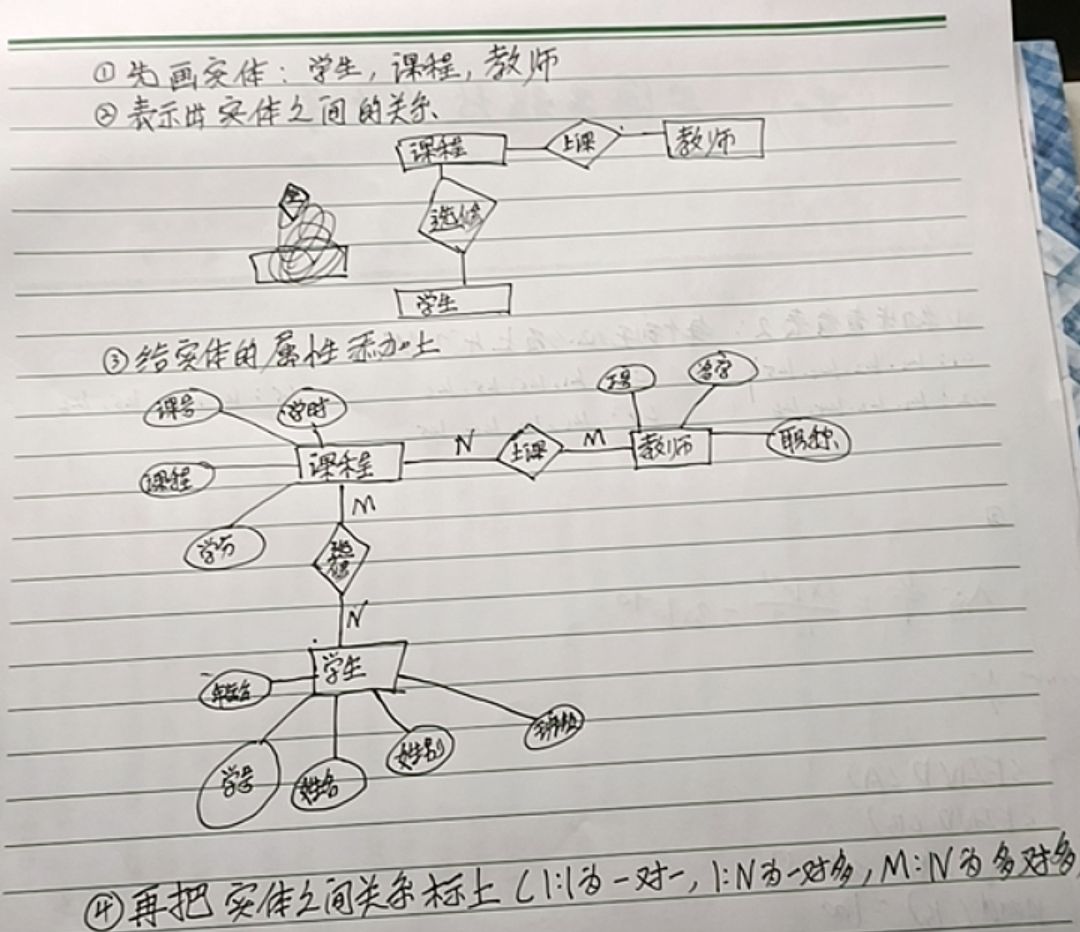 ①先画实体：学生，课程，教师
②表示出实体之间的关系
课程 上课 教师
选修
学生
③给实体的属性添加上
课号 学时
课程 N 上课 M 教师 职称
课程
学分
M
选修
N
学生
年龄
学号 姓名 性别 班级
④再把实体之间关系标上（1:1为一对一，1:N为一对多，M:N为多对多